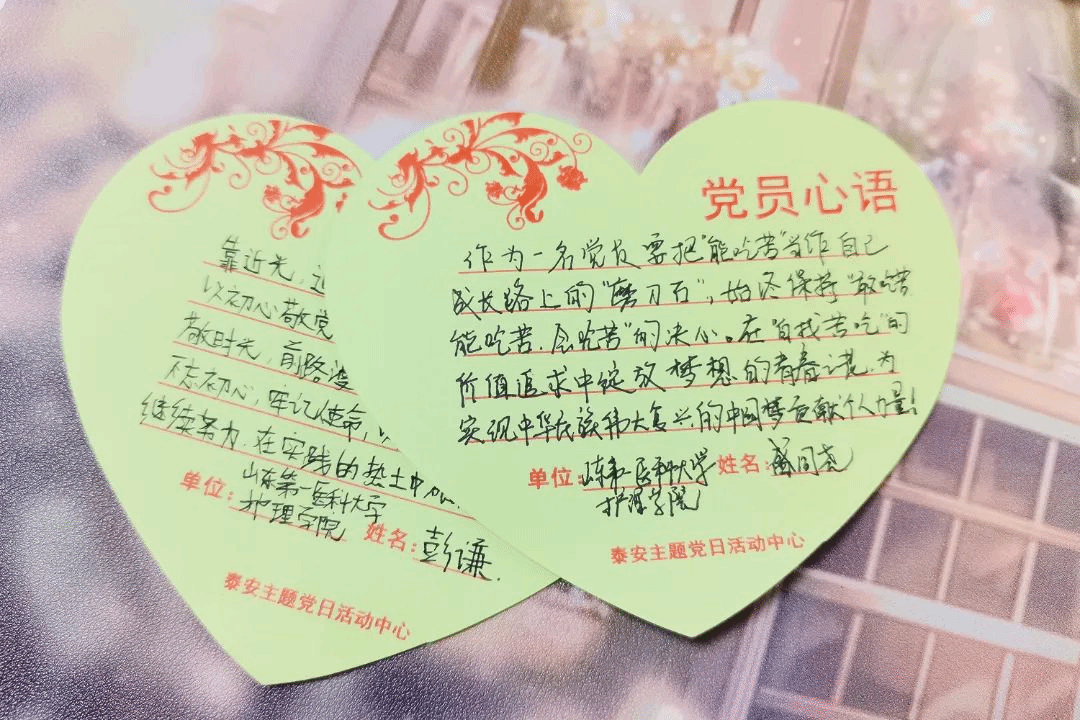 靠近光，追
以初心敬党
敬时光，前路漫
不忘初心，牢记使命，以
继续努力，在实践的热土中
单位：山东第一医科大学
护理学院
姓名：彭谦
泰安主题党日活动中心
党员心语
作为一名党员要把"能吃苦"当作自己
成长路上的"磨刀石"，始终保持"敢吃苦
能吃苦、会吃苦"的决心。在"自找苦吃"的
价值追求中绽放梦想的青春之花，为
实现中华民族伟大复兴的中国梦贡献个人力量！
单位：山东第一医科大学 姓名：同尧
护理学院
泰安主题党日活动中心